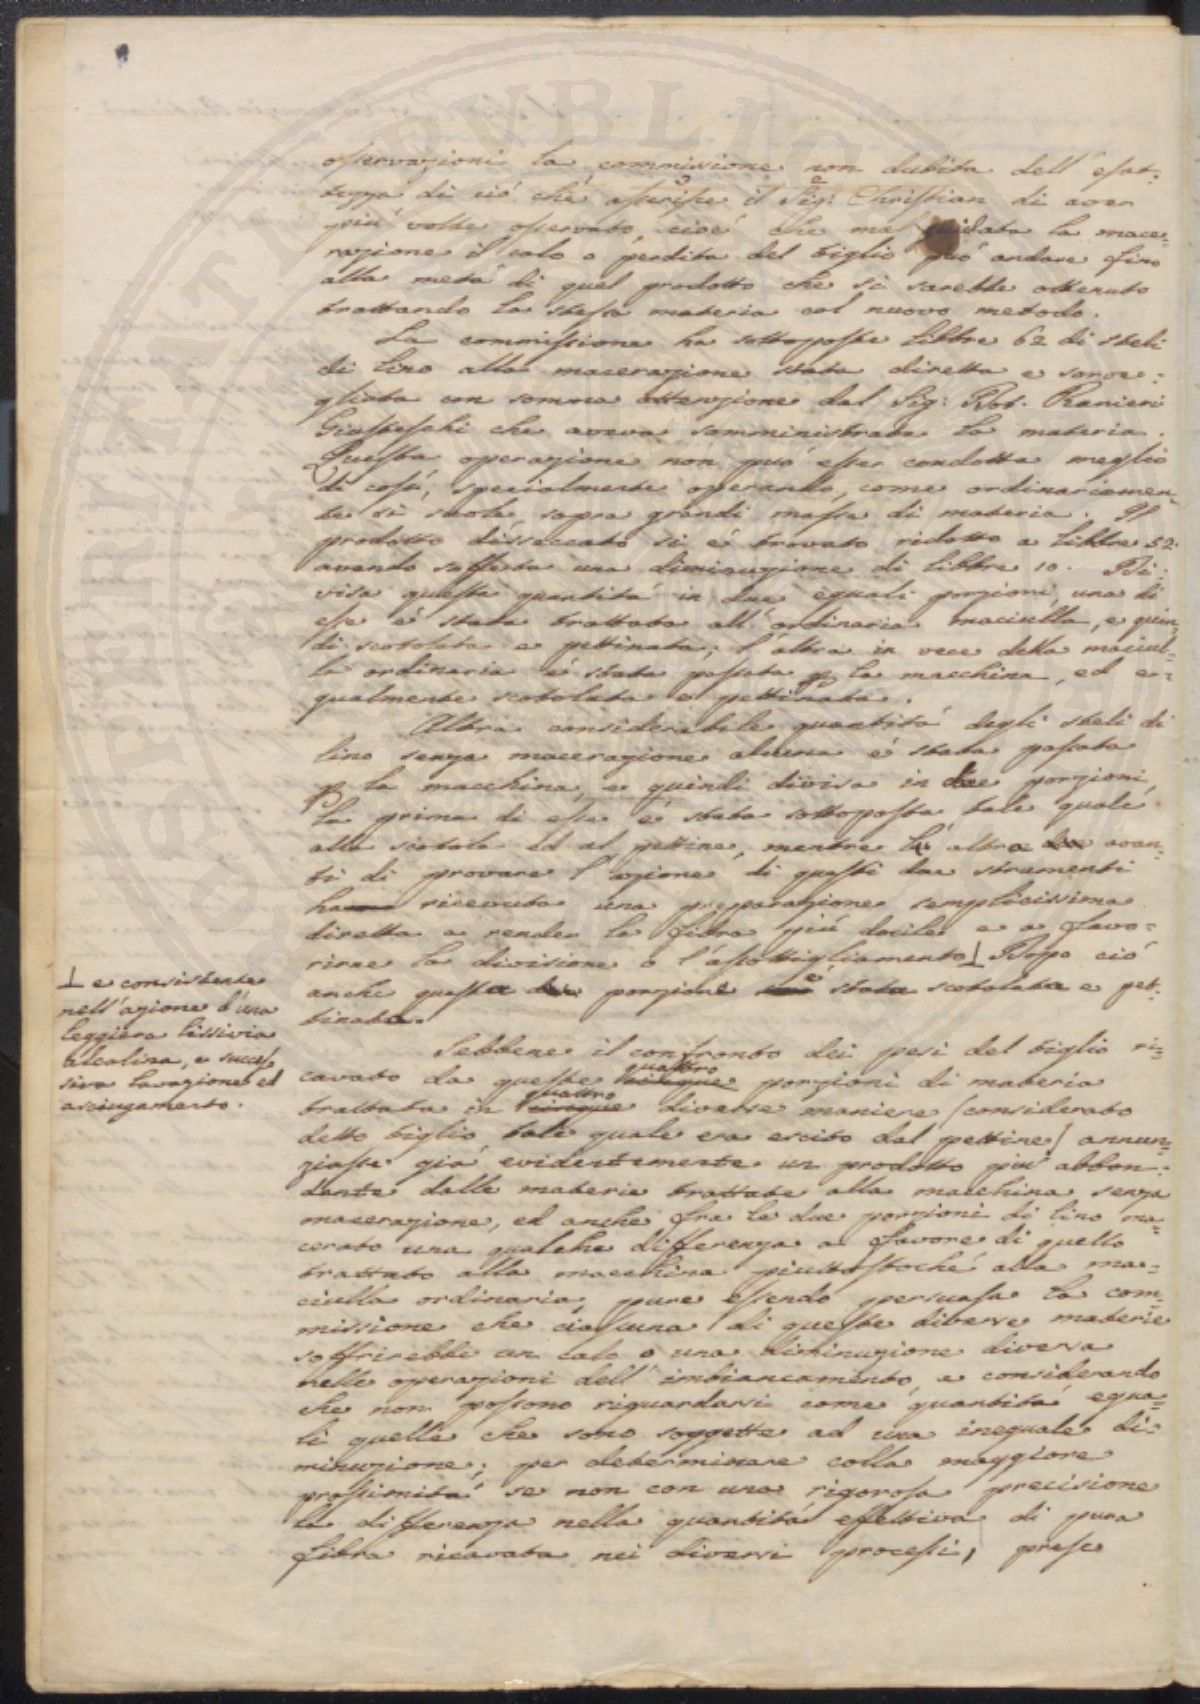 osservazioni la commissione non dubita dell'esat=
tezza di ciò che asserisce il Sig.e Christian di aver
più volte osservato, cioè che mal guidata la mace=
razione il calo o perdita del tiglio può andare fino
alla metà di quel prodotto che si sarebbe ottenuto
trattando la stessa materia col nuovo metodo.
La commissione ha sottoposte libbre 62 di steli
di lino alla macerazione stata diretta e sorve=
gliata con somma attenzione dal Sig: Dot. Ranieri
Giusteschi che aveva somministrata la materia.
Questa operazione non può esser condotta meglio
di così, specialmente operando, come ordinariamen=
te si suole, sopra grandi masse di materia. Il
prodotto disseccato si è trovato ridotto a libbre 52.
avendo sofferta una diminuzione di libbre 10. Di=
visa questa quantità in due eguali porzioni, una di
esse è stata trattata all'ordinaria maciulla, e quin=
di scotolata e pettinata; l'altra in vece della maciul=
la ordinaria è stata passata p la macchina, ed e=
gualmente scotolata e pettinata.
Altra considerabile quantità degli steli di
lino senza macerazione alcuna è stata passata
p la macchina, e quindi divisa in due porzioni,
la prima di esse è stata sottoposta tale quale
alla scotola ed al pettine, mentre l'altra avan=
ti di provare l'azione di questi due strumenti
ha ricevuta una preparazione semplicissima
diretta a render la fibra più docile e a favo=
rirne la divisione o l'assottigliamento ⊥ Dopo ciò
anche questa porzione è stata scotolata e pet=
tinata.
⊥ e consistente
nell'azione d'una
leggiera lissivia
alcalina, e succes=
siva lavazione ed
asciugamento.
Sebbene il confronto dei pesi del tiglio ri=
cavato da queste cinque quattro porzioni di materia
trattata in cinque quattro diverse maniere (considerato
detto tiglio tale quale era escito dal pettine) annun=
ziasse già evidentemente un prodotto più abbon=
dante dalle materie trattate alla macchina senza
macerazione, ed anche fra le due porzioni di lino ma=
cerato una qualche differenza a favore di quello
trattato alla macchina piuttostoché alla ma=
ciulla ordinaria, pure essendo persuasa la com=
missione che ciascuna di queste diverse materie
soffrirebbe un calo o una diminuzione diversa
nelle operazioni dell'imbiancamento, e considerando
che non possono riguardarsi come quantità egua=
li quelle che sono soggette ad una ineguale di=
minuzione; per determinare colla maggiore
prossimità se non con una rigorosa precisione
la differenza nella quantità effettiva di pura
fibra ricavata nei diversi processi, prese